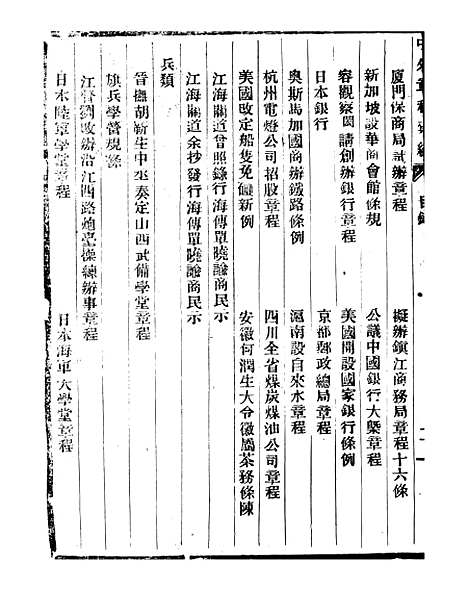 中外章程彙編 目錄 二一
廈門保商局試辦章程 擬辦鎮江商務局章程十六條
新加坡設華商會館條規 公議中國銀行大槩章程
容觀察閎請創辦銀行章程 美國開設國家銀行條例
日本銀行 京都郵政總局章程
奧斯馬加國商辦鐵路條例 滬南設自來水章程
杭州電燈公司招股章程 四川全省煤炭煤油公司章程
美國改定船隻免碰新例 安徽何潤生大令徽屬茶務條陳
江海關道曾照錄行海傳單曉諭商民示
江海關道余抄發行海傳單曉諭商民示
兵類
晉撫胡新生中丞奏定山西武備學堂章程
旗兵學營規條
江督劉改辦沿江四路炮臺操練辦事章程
日本陸軍學堂章程 日本海軍大學堂章程